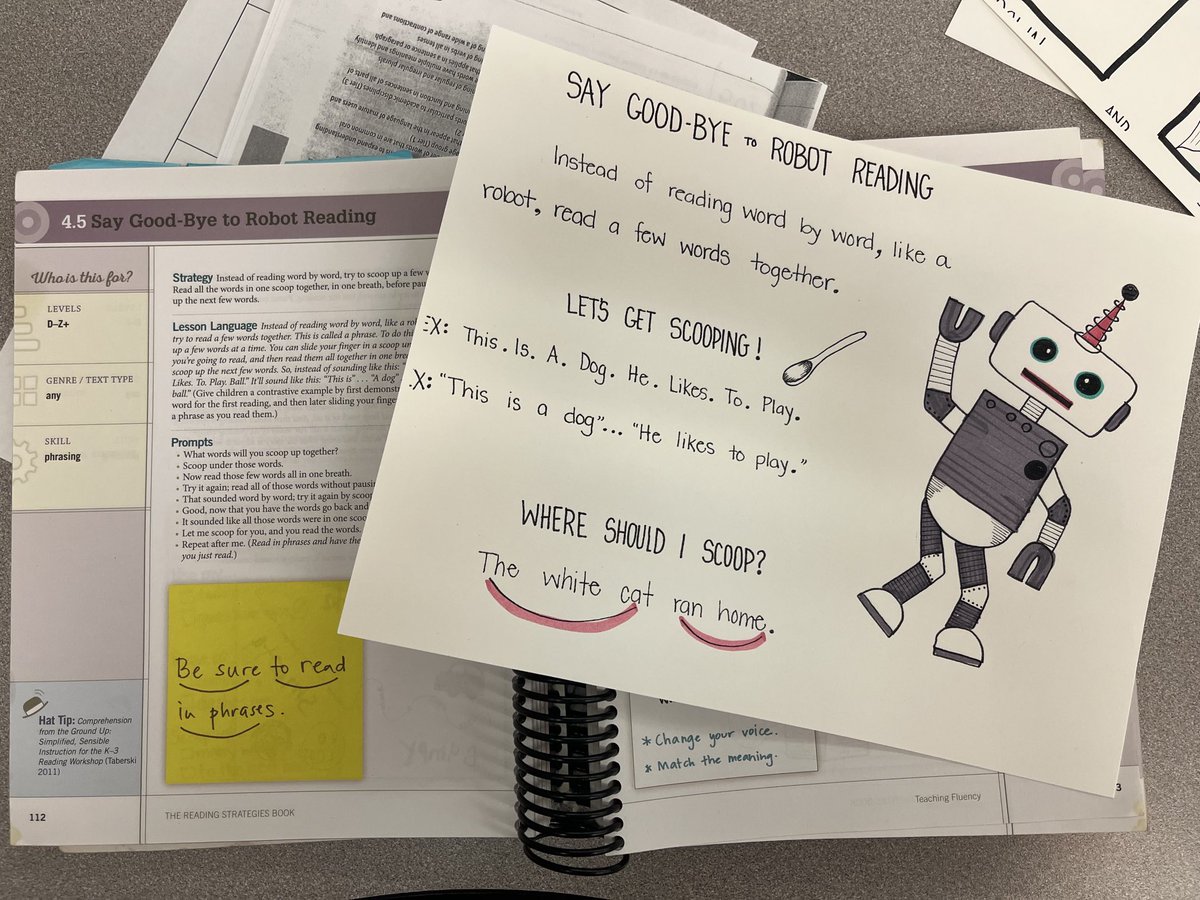 SAY GOOD-BYE TO ROBOT READING
Instead of reading word by word, like a
robot, read a few words together.
LET'S GET SCOOPING!
EX: This. Is. A. Dog. He. Likes. To. Play.
X: "This is a dog"... "He likes to play."
WHERE SHOULD I SCOOP?
The white cat ran home.
4.5 Say Good-Bye to Robot Reading
Who is this for?
LEVELS
D–Z+
GENRE / TEXT TYPE
any
SKILL
phrasing
Hat Tip: Comprehension
from the Ground Up:
Simplified, Sensible
Instruction for the K–3
Reading Workshop (Taberski
2011)
Strategy Instead of reading word by word, try to scoop up a few
Read all the words in one scoop together, in one breath, before
up the next few words.
Lesson Language Instead of reading word by word, like a
try to read a few words together. This is called a phrase. To do
up a few words at a time. You can slide your finger in a scoop
you're going to read, and then read them all together in one
scoop up the next few words. So, instead of sounding like this:
Likes. To. Play. Ball." It'll sound like this: "This is" . . . "A dog"
ball." (Give children a contrastive example by first
word for the first reading, and then later sliding your
a phrase as you read them.)
Prompts
• What words will you scoop up together?
• Scoop under those words.
• Now read those few words all in one breath.
• Try it again; read all of those words without
• That sounded word by word; try it again by
• Good, now that you have the words go back and
• It sounded like all those words were in one
• Let me scoop for you, and you read the words.
• Repeat after me. (Read in phrases and have
you just read.)
Be sure to read
in phrases.
* Change your voice.
* Match the meaning.
112
THE READING STRATEGIES BOOK
Teaching Fluency
3
AND